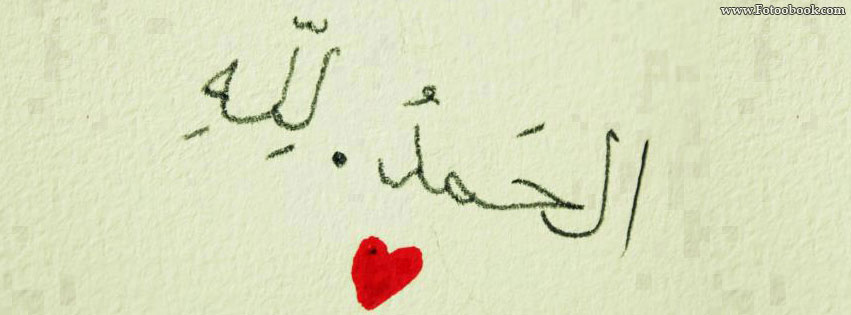 www.Fotoobook.com
الحَمدُ . لِلّهِ